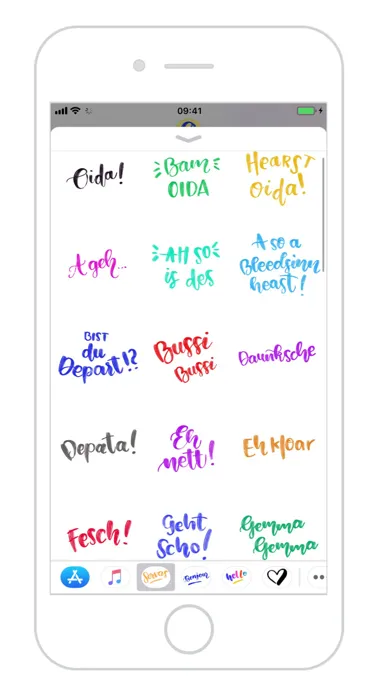 09:41
Oida!
Bam
OIDA
HEARST
Oida!
A geh...
AH SO
is des
A so a
Bledsinn
heast!
BIST
du
Depart!?
Bussi
Bussi
Daunksche
Depata!
Eh
nett!
Eh kloar
Fesch!
Geht
Scho!
Gemma
Gemma
Servus
Bonjour
hello